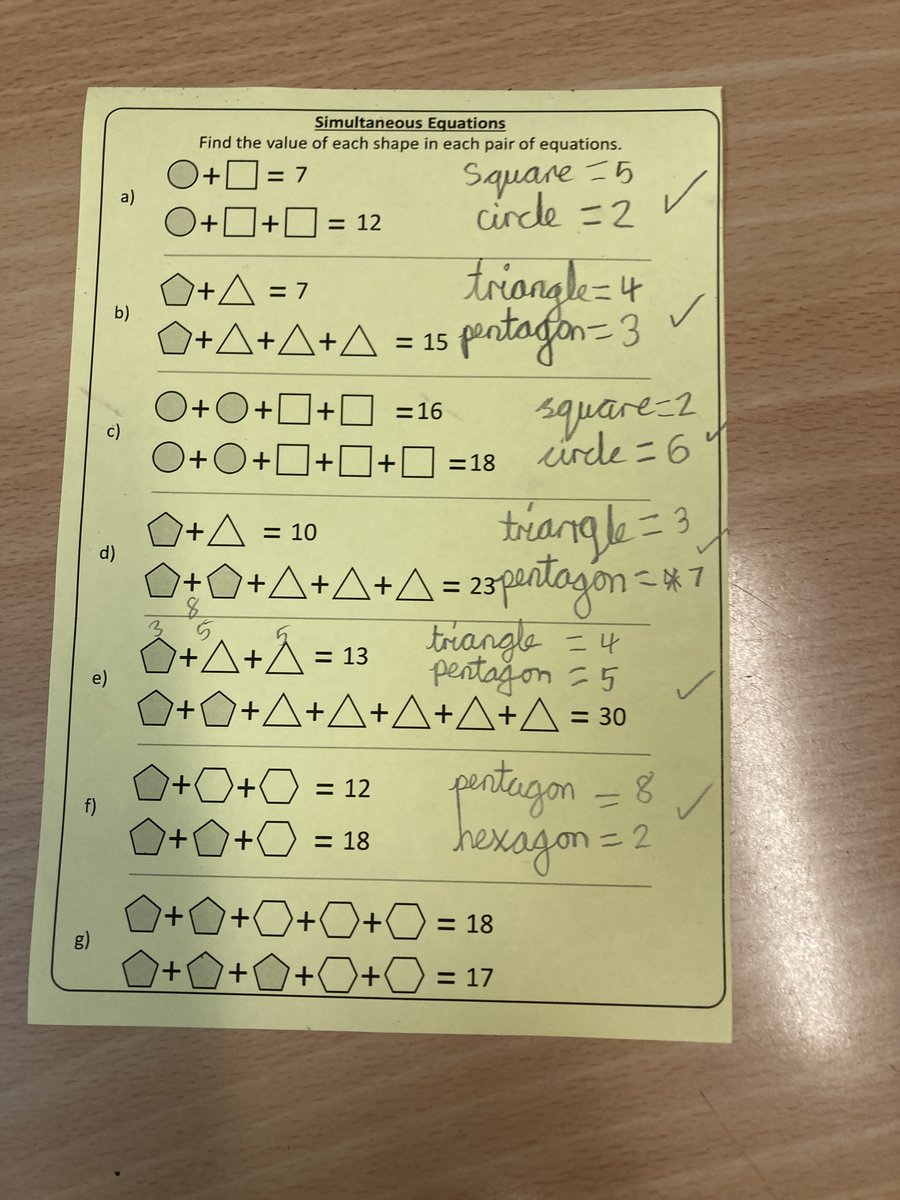 Simultaneous Equations
Find the value of each shape in each pair of equations.
a)
◯+□ = 7
square = 5
◯+□+□ = 12
circle = 2
b)
⬠+△ = 7
triangle = 4
⬠+△+△+△ = 15
pentagon = 3
c)
◯+◯+□+□ =16
square = 2
◯+◯+□+□+□ =18
circle = 6
d)
⬠+△ = 10
triangle = 3
⬠+⬠+△+△+△ = 23
pentagon = 7
8
3 5 5
e)
⬠+△+△ = 13
triangle = 4
pentagon = 5
⬠+⬠+△+△+△+△+△ = 30
f)
⬠+⬡+⬡ = 12
pentagon = 8
⬠+⬠+⬡ = 18
hexagon = 2
g)
⬠+⬠+⬡+⬡+⬡ = 18
⬠+⬠+⬠+⬡+⬡ = 17